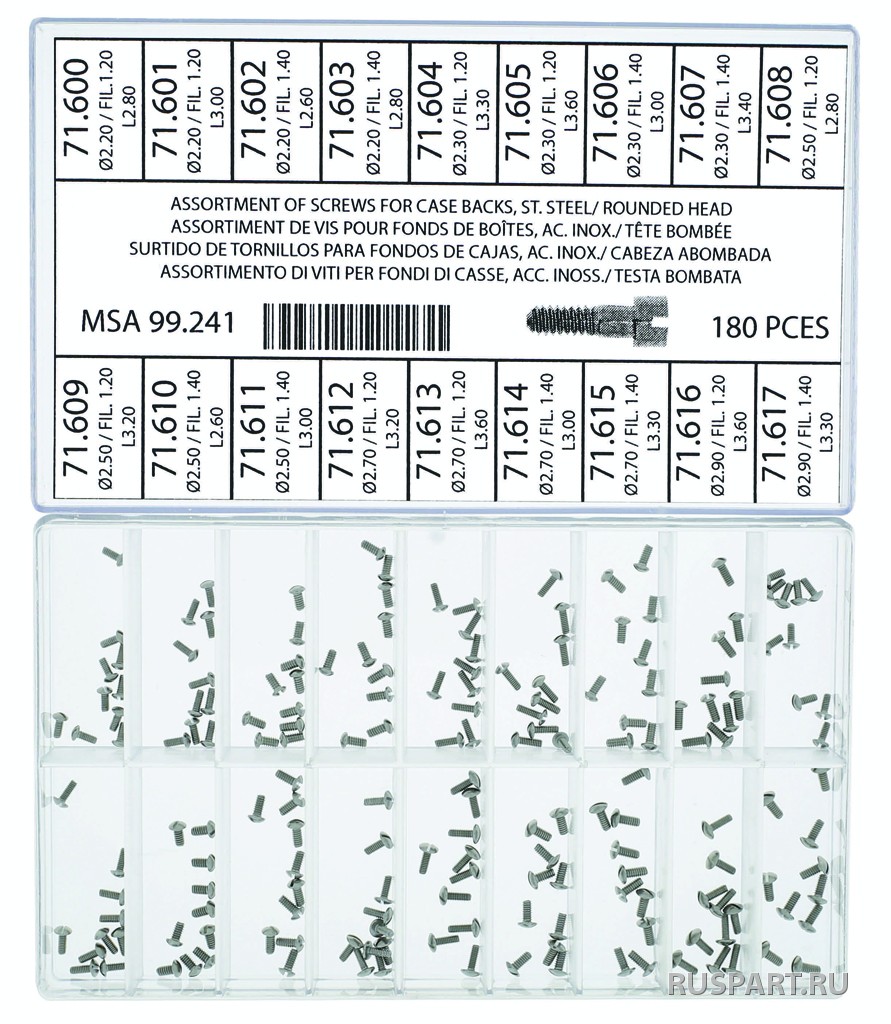 71.600
Ø2.20 / FIL. 1.20
L2.80
71.601
Ø2.20 / FIL. 1.20
L3.00
71.602
Ø2.20 / FIL. 1.40
L2.60
71.603
Ø2.20 / FIL. 1.40
L2.80
71.604
Ø2.30 / FIL. 1.20
L3.30
71.605
Ø2.30 / FIL. 1.20
L3.60
71.606
Ø2.30 / FIL. 1.40
L3.00
71.607
Ø2.30 / FIL. 1.40
L3.40
71.608
Ø2.50 / FIL. 1.20
L2.80
ASSORTMENT OF SCREWS FOR CASE BACKS, ST. STEEL/ ROUNDED HEAD
ASSORTIMENT DE VIS POUR FONDS DE BOÎTES, AC. INOX./ TÊTE BOMBÉE
SURTIDO DE TORNILLOS PARA FONDOS DE CAJAS, AC. INOX./ CABEZA ABOMBADA
ASSORTIMENTO DI VITI PER FONDI DI CASSE, ACC. INOSS./ TESTA BOMBATA
MSA 99.241
180 PCES
71.609
Ø2.50 / FIL. 1.20
L3.20
71.610
Ø2.50 / FIL. 1.40
L2.60
71.611
Ø2.50 / FIL. 1.40
L3.00
71.612
Ø2.70 / FIL. 1.20
L3.20
71.613
Ø2.70 / FIL. 1.20
L3.60
71.614
Ø2.70 / FIL. 1.40
L3.00
71.615
Ø2.70 / FIL. 1.40
L3.30
71.616
Ø2.90 / FIL. 1.20
L3.60
71.617
Ø2.90 / FIL. 1.40
L3.30
RUSPART.RU